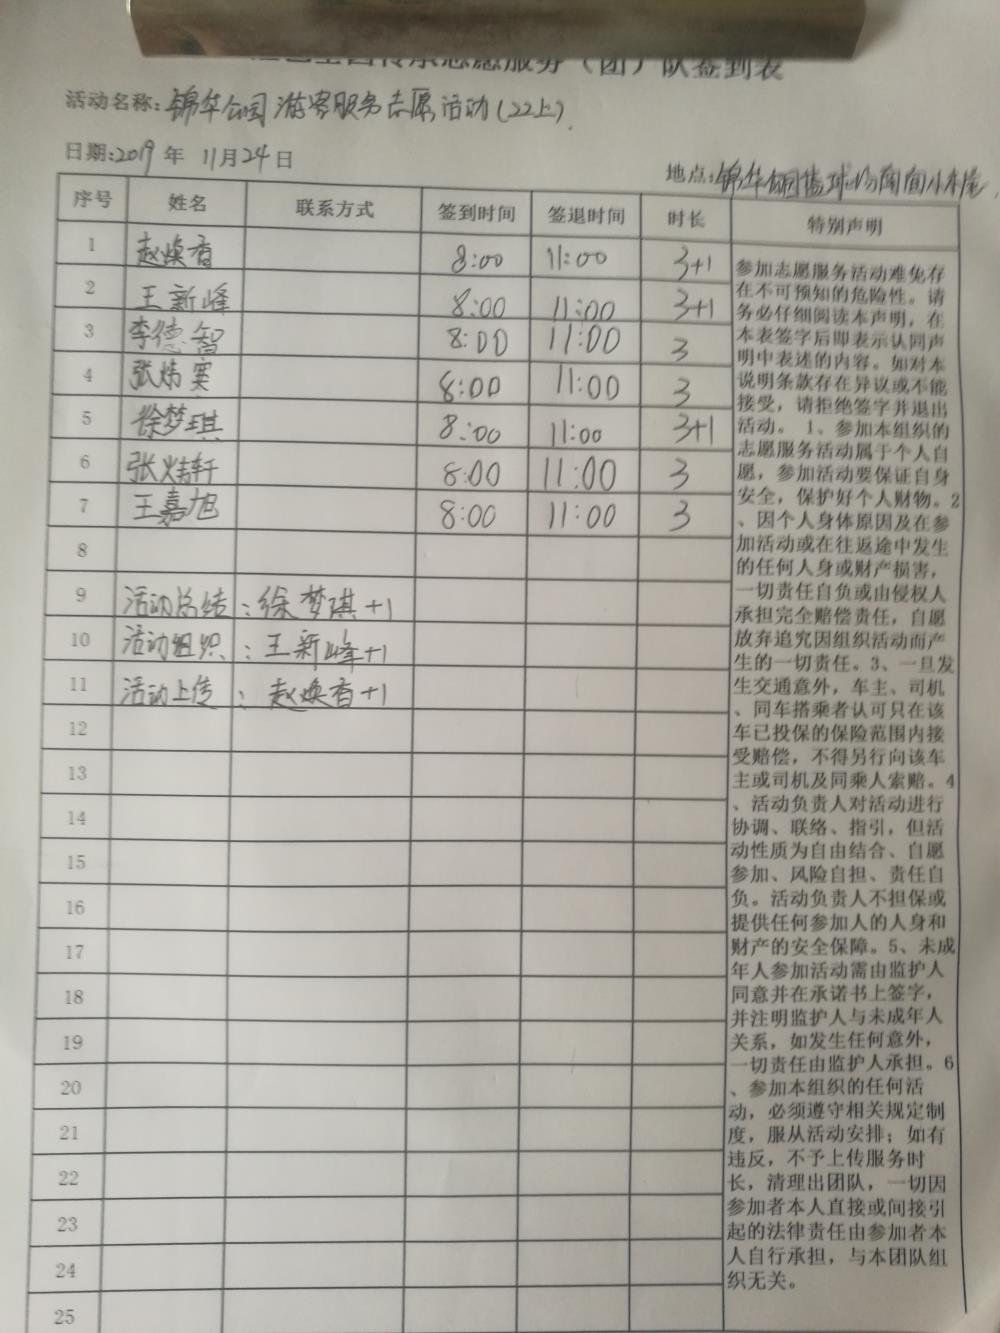 传承志愿服务（团）队签到表
活动名称：锦华公园游客服务志愿活动（22上）
日期：2019年 11月24日
地点：锦华公园篮球场南面小木屋
序号 姓名 联系方式 签到时间 签退时间 时长 特别声明
1 赵焕香 8:00 11:00 3+1
2 王新峰 8:00 11:00 3+1
3 李德智 8:00 11:00 3
4 张炜奕 8:00 11:00 3
5 徐梦琪 8:00 11:00 3+1
6 张炜轩 8:00 11:00 3
7 王嘉旭 8:00 11:00 3
8
9 活动总结：徐梦琪+1
10 活动组织：王新峰+1
11 活动上传：赵焕香+1
12
13
14
15
16
17
18
19
20
21
22
23
24
25
参加志愿服务活动难免存
在不可预知的危险性。请
务必仔细阅读本声明，在
本表签字后即表示认同声
明中表述的内容。如对本
说明条款存在异议或不能
接受，请拒绝签字并退出
活动。 1、参加本组织的
志愿服务活动属于个人自
愿，参加活动要保证自身
安全，保护好个人财物。2
、因个人身体原因及在参
加活动或在往返途中发生
的任何人身或财产损害，
一切责任自负或由侵权人
承担完全赔偿责任，自愿
放弃追究因组织活动而产
生的一切责任。3、一旦发
生交通意外，车主、司机
、同车搭乘者认可只在该
车已投保的保险范围内接
受赔偿，不得另行向该车
主或司机及同乘人索赔。4
、活动负责人对活动进行
协调、联络、指引，但活
动性质为自由结合、自愿
参加、风险自担、责任自
负。活动负责人不担保或
提供任何参加人的人身和
财产的安全保障。5、未成
年人参加活动需由监护人
同意并在承诺书上签字，
并注明监护人与未成年人
关系，如发生任何意外，
一切责任由监护人承担。6
、参加本组织的任何活
动，必须遵守相关规定制
度，服从活动安排；如有
违反，不予上传服务时
长，清理出团队，一切因
参加者本人直接或间接引
起的法律责任由参加者本
人自行承担，与本团队组
织无关。